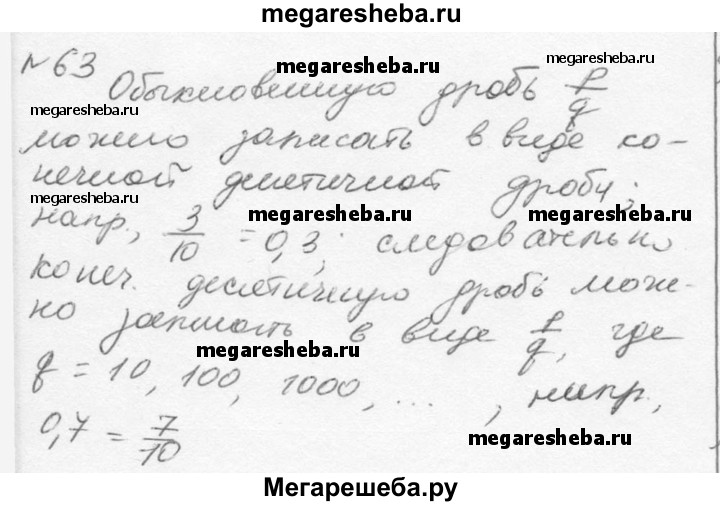 megaresheba.ru
№63
megaresheba.ru
megaresheba.ru
Обыкновенную дробь p/q
megaresheba.ru
можно записать в виде ко-
нечной десятичной дроби;
megaresheba.ru
megaresheba.ru
megaresheba.ru
напр., 3/10 = 0,3; следовательно
конеч. десятичную дробь мож-
но записать в виде p/q, где
megaresheba.ru
megaresheba.ru
q = 10, 100, 1000, ... , напр.,
0,7 = 7/10
megaresheba.ru
Мегарешеба.ру